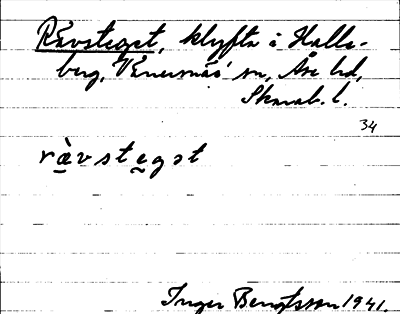 Rävsteget, klyfta i Halle-
berg, Vänersnäs sn, Åse hd,
Skarab. l.
34
rä̀vstegət
Inger Bengtsson 1941.